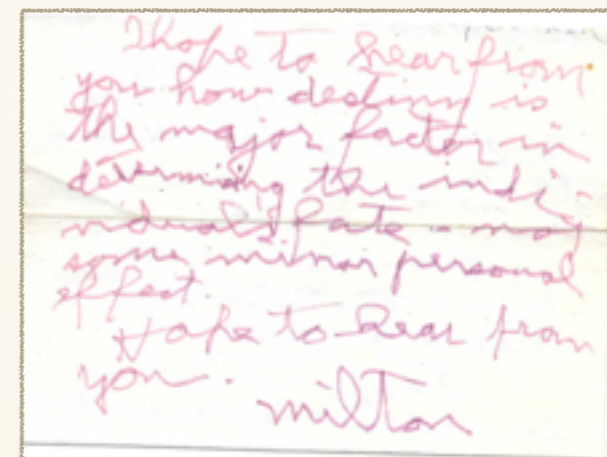 I hope to hear from
you how destiny is
the major factor in
determining the indi-
vidual's fate - not
some minor personal
effect.
Hope to hear from
you.
Milton